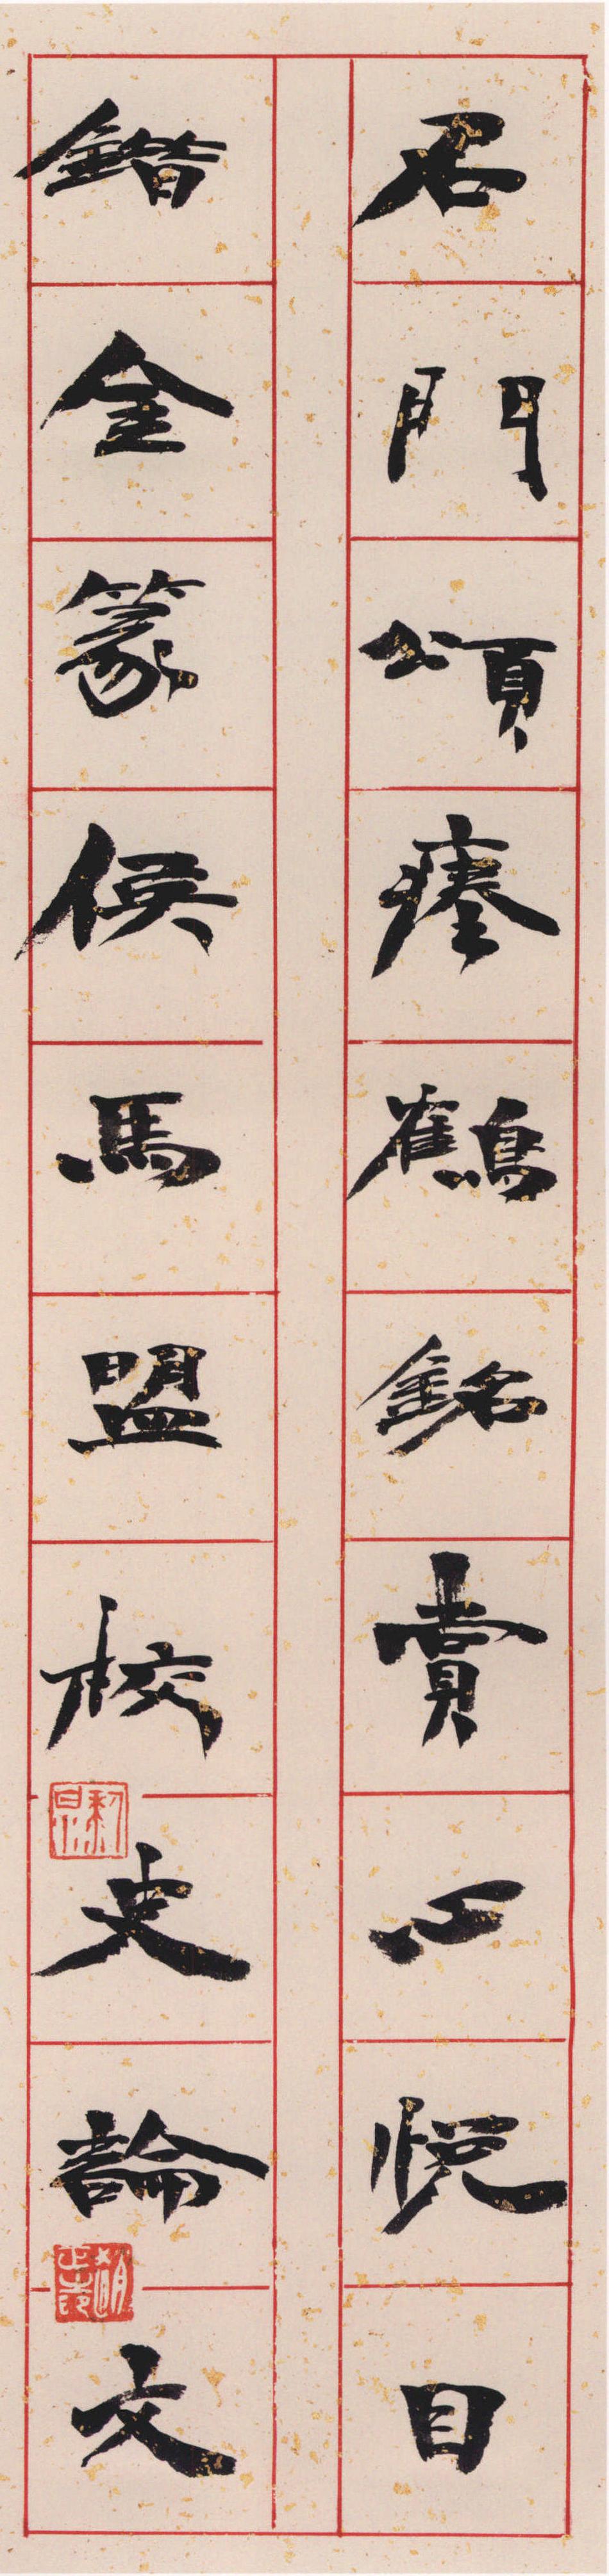 石門頌瘞鶴銘賞心悅目
錯金篆侯馬盟校史論文